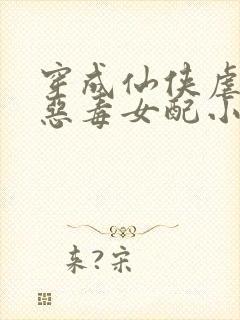 穿成仙侠虐
恶毒女配小
来?宋